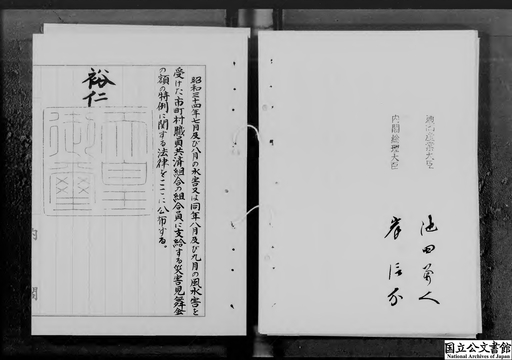 昭和三十四年七月及び八月の水害又は同年八月及び九月の風水害を
受けた市町村職員共済組合の組合員に支給する災害見舞金
の額の特例に関する法律をここに公布する。
裕仁
天皇
御璽
内閣
内閣総理大臣
岸信介
池田勇人
国立公文書館
National Archives of Japan